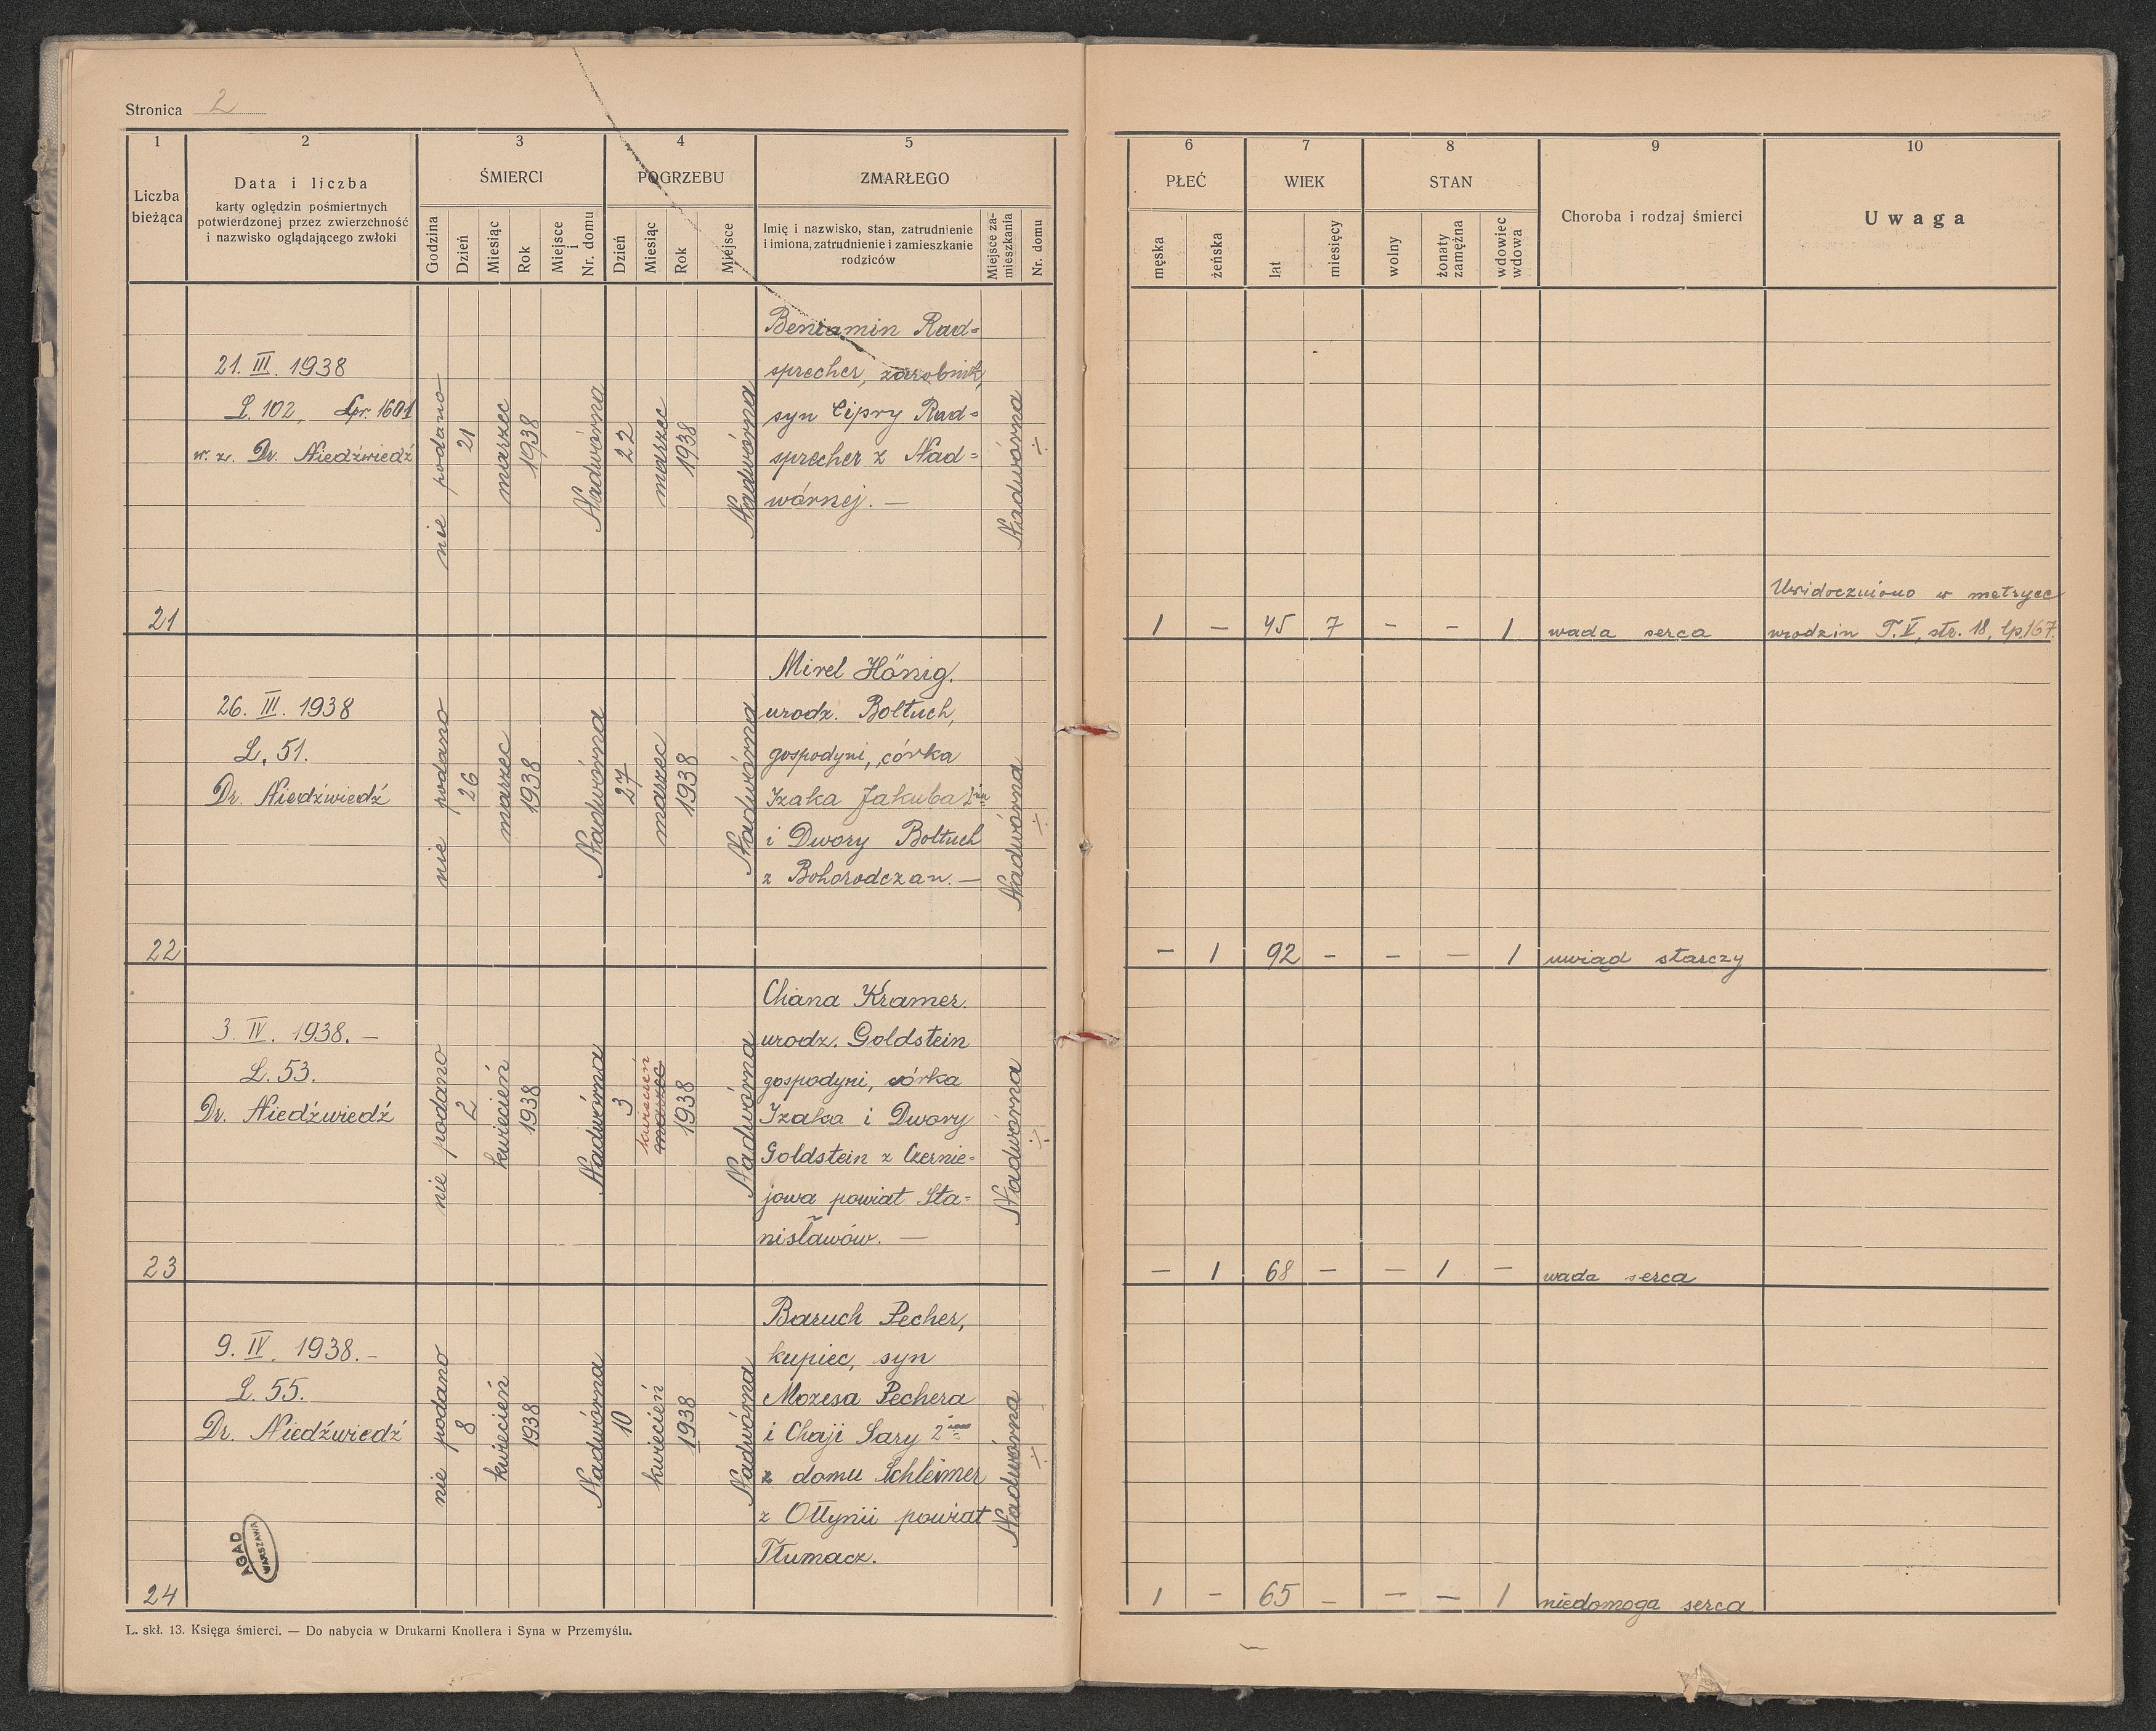 Stronica 2
1 2 3 4 5 6 7 8 9 10
Liczba bieżąca
Data i liczba
karty oględzin pośmiertnych
potwierdzonej przez zwierzchność
i nazwisko oglądającego zwłoki
ŚMIERCI
Godzina
Dzień
Miesiąc
Rok
Miejsce i Nr. domu
POGRZEBU
Dzień
Miesiąc
Rok
Miejsce
ZMARŁEGO
Imię i nazwisko, stan, zatrudnienie
i imiona, zatrudnienie i zamieszkanie
rodziców
Miejsce za-
mieszkania
Nr. domu
PŁEĆ
męska
żeńska
WIEK
lat
miesięcy
STAN
wolny
żonaty zamężna
wdowiec wdowa
Choroba i rodzaj śmierci
Uwaga
21
21. III. 1938
L. 102, Lpr. 1601
w. z. Dr. Niedźwiedź
nie podano
21
marzec
1938
Nadwórna
22
marzec
1938
Nadwórna
Beniamin Rad=
sprecher, zarobnik,
syn Cipry Rad=
sprecher z Nad=
wórnej. —
Nadwórna
÷
1 — 45 7 — — 1 wada serca
Uwidoczniono w metryce
urodzin T. V, str. 18, lp. 167.
22
26. III. 1938
L. 51.
Dr. Niedźwiedź
nie podano
26
marzec
1938
Nadwórna
27
marzec
1938
Nadwórna
Mirel Hönig.
urodz. Bołtuch,
gospodyni, córka
Izaka Jakuba 2im
i Dwory Bołtuch
z Bohorodczan. —
Nadwórna
÷
— 1 92 — — — 1 uwiąd starczy
23
3. IV. 1938. —
L. 53.
Dr. Niedźwiedź
nie podano
2
kwiecień
1938
Nadwórna
3
kwiecień
marzec
1938
Nadwórna
Chana Kramer.
urodz. Goldstein
gospodyni, córka
Izaka i Dwory
Goldstein z Czernie=
jowa powiat Sta=
nisławów. —
Nadwórna
÷
— 1 68 — — 1 — wada serca
24
9. IV. 1938. —
L. 55.
Dr. Niedźwiedź
nie podano
8
kwiecień
1938
Nadwórna
10
kwiecień
1938
Nadwórna
Baruch Pecher,
kupiec, syn
Mozesa Pechera
i Chaji Sary 2im
z domu Schleimer
z Ottynii powiat
Tłumacz.
Nadwórna
÷
1 — 65 — — — 1 niedomoga serca
AGAD
WARSZAWA
L. skł. 13. Księga śmierci. — Do nabycia w Drukarni Knollera i Syna w Przemyślu.